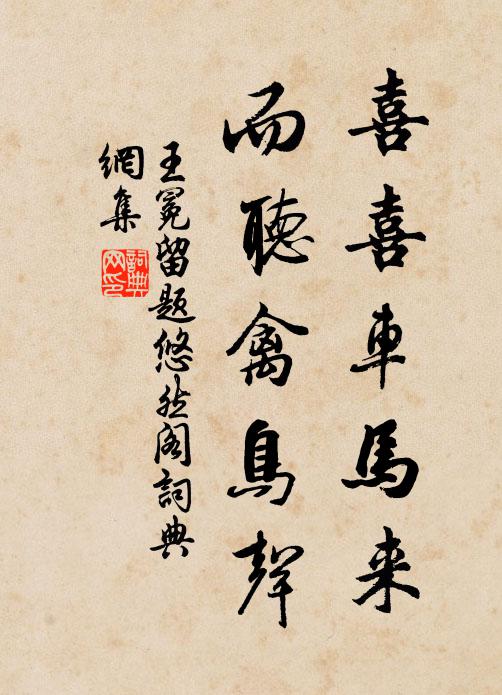 喜喜車馬来
而聽禽鳥聲
王冕留題悠然阁詞典
網集
詞典
网印